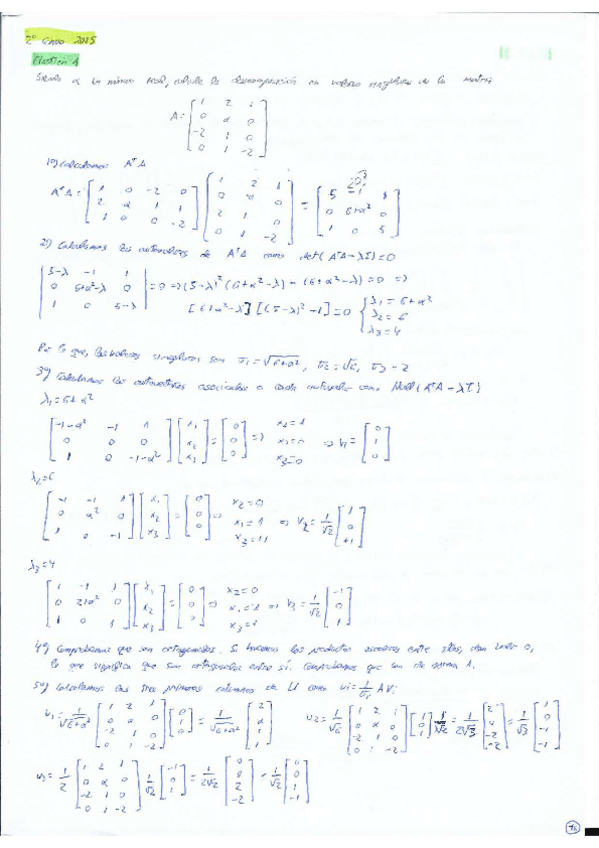 2º Curso 2015
Cuestión 1
Siendo α un número real, calcule la descomposición en valores singulares de la matriz
A = [1 2 1; 0 α 0; -2 1 0; 0 1 -2]
1º) Calculamos AᵀA
AᵀA = [1 0 -2 0; 2 α 1 1; 1 0 0 -2] [1 2 1; 0 α 0; -2 1 0; 0 1 -2] = [5 0 1; 0 6+α² 0; 1 0 5]
2º) Calculamos los autovalores de AᵀA como det(AᵀA-λI)=0
|5-λ -1 1; 0 6+α²-λ 0; 1 0 5-λ| = 0 => (5-λ)²(6+α²-λ) - (6+α²-λ) = 0 =>
[6+α²-λ] [(5-λ)²-1] = 0 { λ₁ = 6+α² λ₂ = 6 λ₃ = 4
Por lo que, los valores singulares son σ₁ = √6+α², σ₂ = √6, σ₃ = 2
3º) Calculamos los autovectores asociados a cada autovalor como Null(AᵀA-λI)
λ₁ = 6+α²
[-1-α² -1 1; 0 0 0; 1 0 -1-α²] [x₁; x₂; x₃] = [0; 0; 0] => x₂=1 x₃=0 => v₁ = [0; 1; 0]
λ₂ = 6
[-1 -1 1; 0 α² 0; 1 0 -1] [x₁; x₂; x₃] = [0; 0; 0] => x₂=0 x₁=1 => v₂ = 1/√2 [1; 0; +1]
λ₃ = 4
[1 -1 1; 0 2+α² 0; 1 0 1] [x₁; x₂; x₃] = [0; 0; 0] => x₂=0 => v₃ = 1/√2 [-1; 0; 1]
4º) Comprobamos que son ortogonales. Si hacemos los productos escalares entre ellos, dan todos 0,
lo que significa que son ortogonales entre sí. Comprobamos que son de norma 1.
5º) Calculamos las tres primeras columnas de U como ui = 1/σi AVi
u₁ = 1/√6+α² [1 2 1; 0 α 0; -2 1 0; 0 1 -2] [0; 1; 0] = 1/√6+α² [2; α; 1; 1] u₂ = 1/√6 [1 2 1; 0 α 0; -2 1 0; 0 1 -2] [1; 0; 1] 1/√2 = 1/2√3 [2; 0; -2; -2] = 1/√3 [1; 0; -1; -1]
u₃ = 1/2 [1 2 1; 0 α 0; -2 1 0; 0 1 -2] 1/√2 [-1; 0; 1] = 1/2√2 [0; 0; 2; -2] = 1/√2 [0; 0; 1; -1]